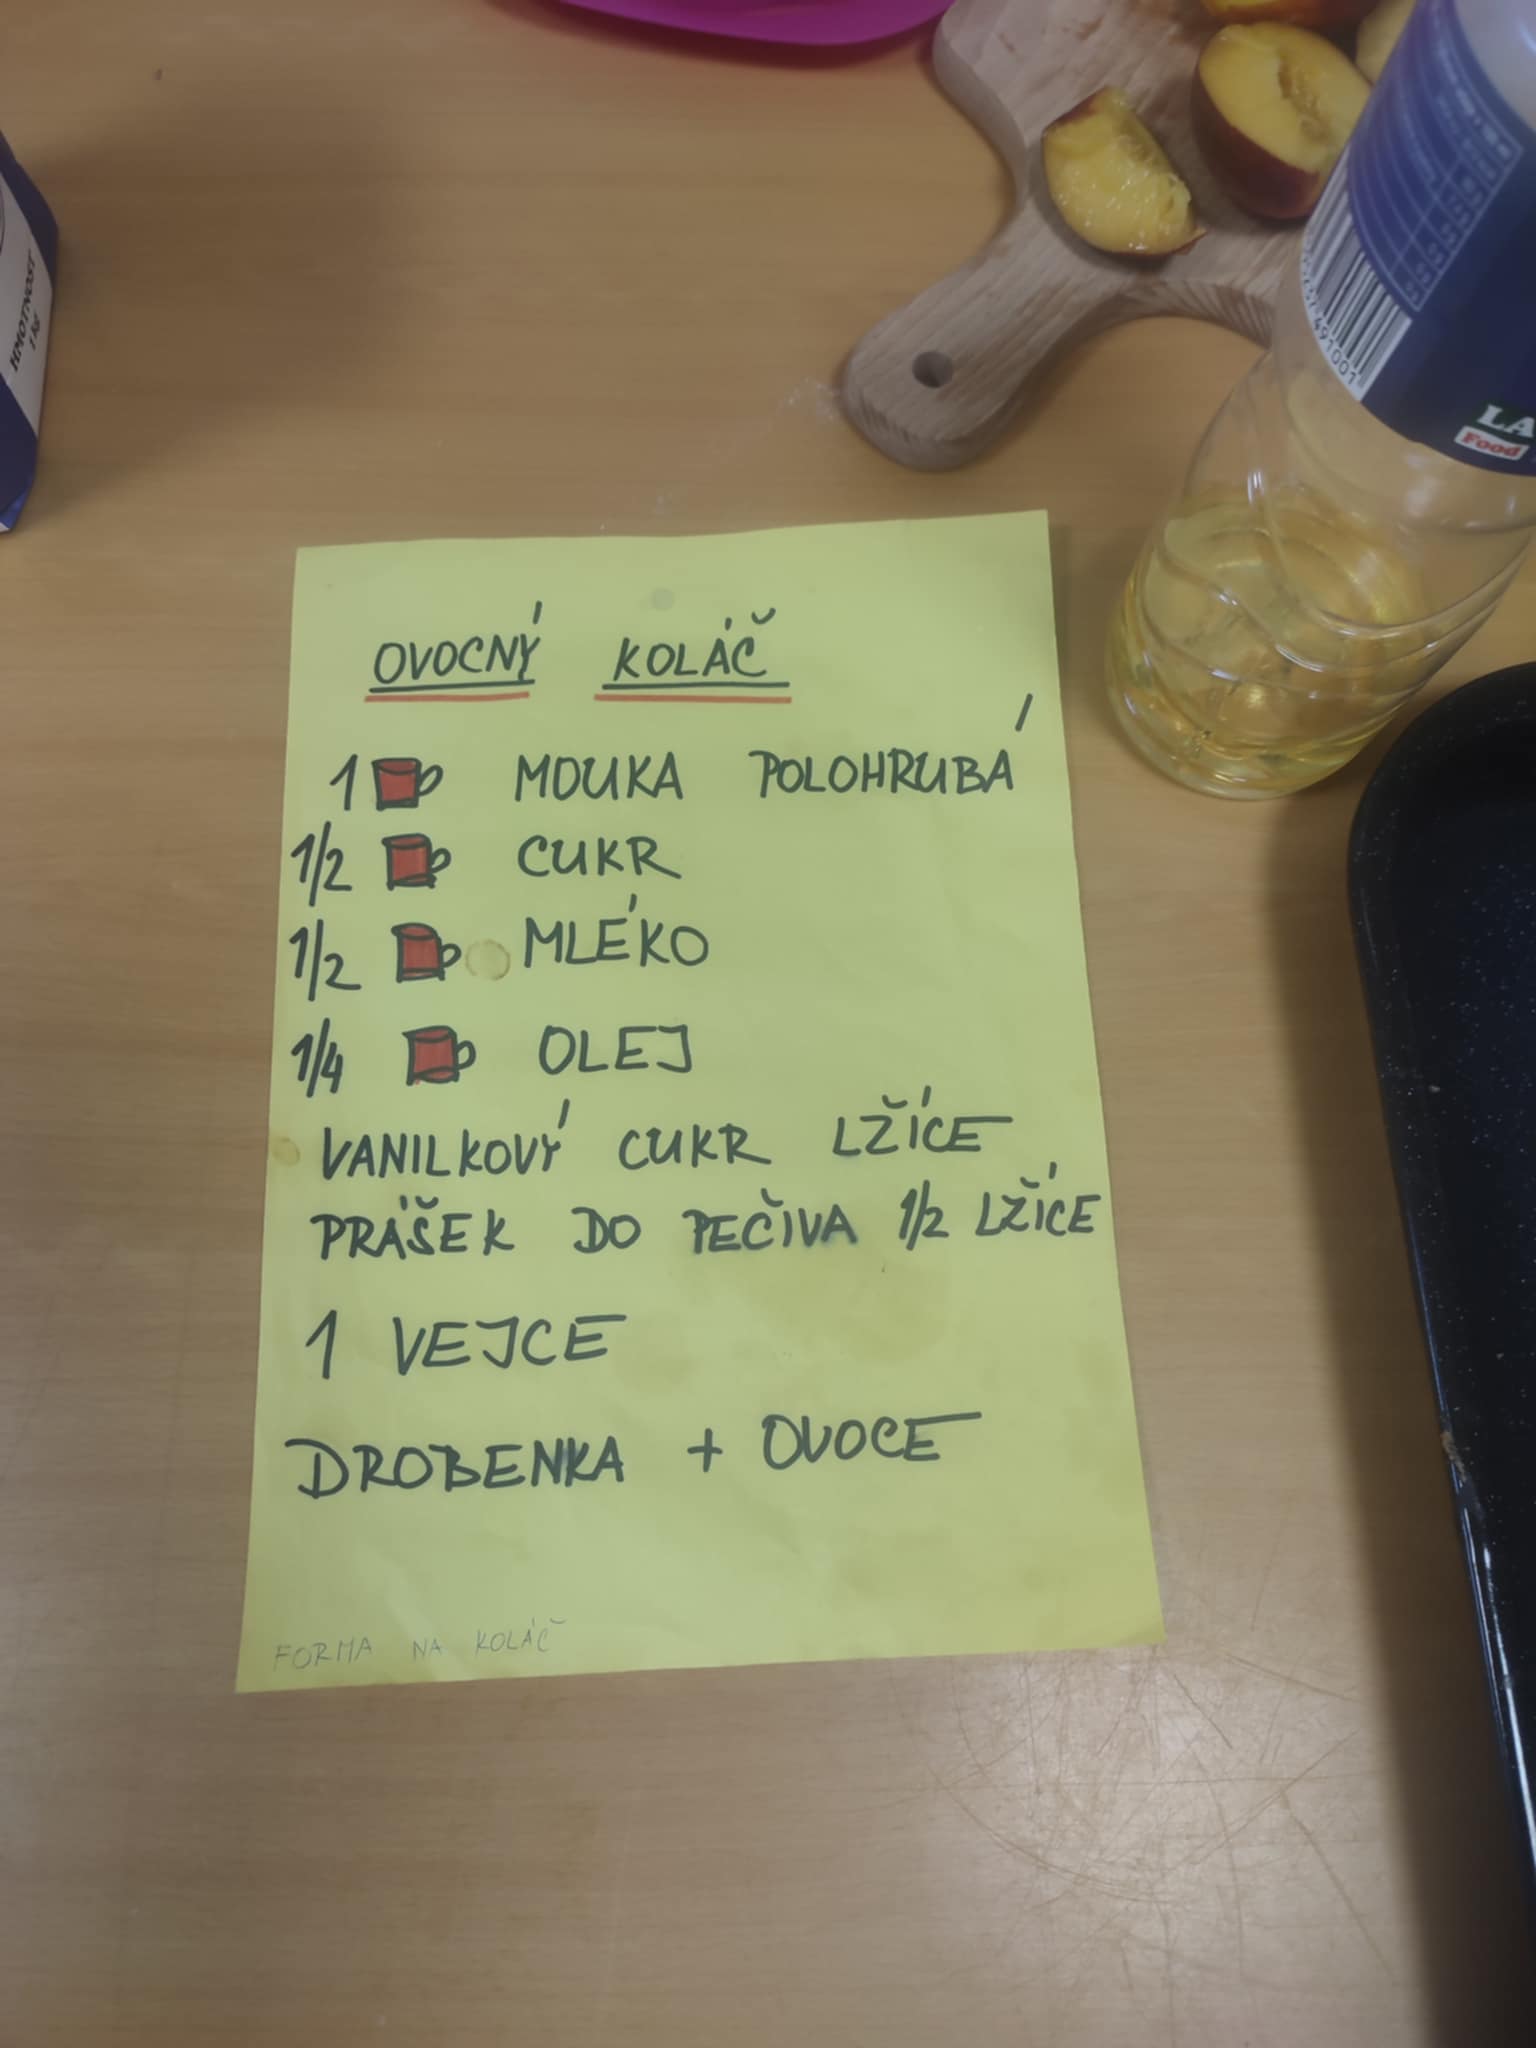 HMOTNOST
1 kg
491001
LA
Food
OVOCNÝ KOLÁČ
1 MOUKA POLOHRUBÁ
1/2 CUKR
1/2 MLÉKO
1/4 OLEJ
VANILKOVÝ CUKR LŽÍCE
PRÁŠEK DO PEČIVA 1/2 LŽÍCE
1 VEJCE
DROBENKA + OVOCE
FORMA NA KOLÁČ